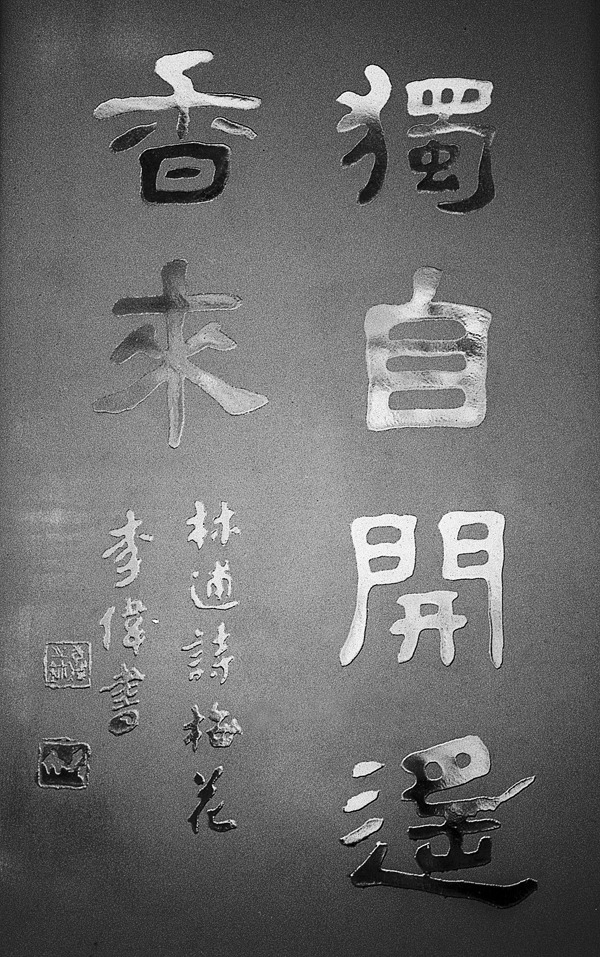 獨自開遙
香來
林逋詩梅花
李偉書